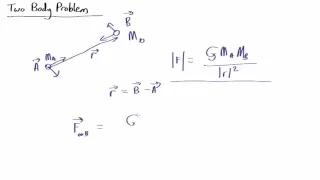 Two Body Problem
B⃗
M_B
M_A
A⃗
r⃗
|F| = G M_A M_B / |r|²
r⃗ = B⃗ - A⃗
F⃗_on B = G